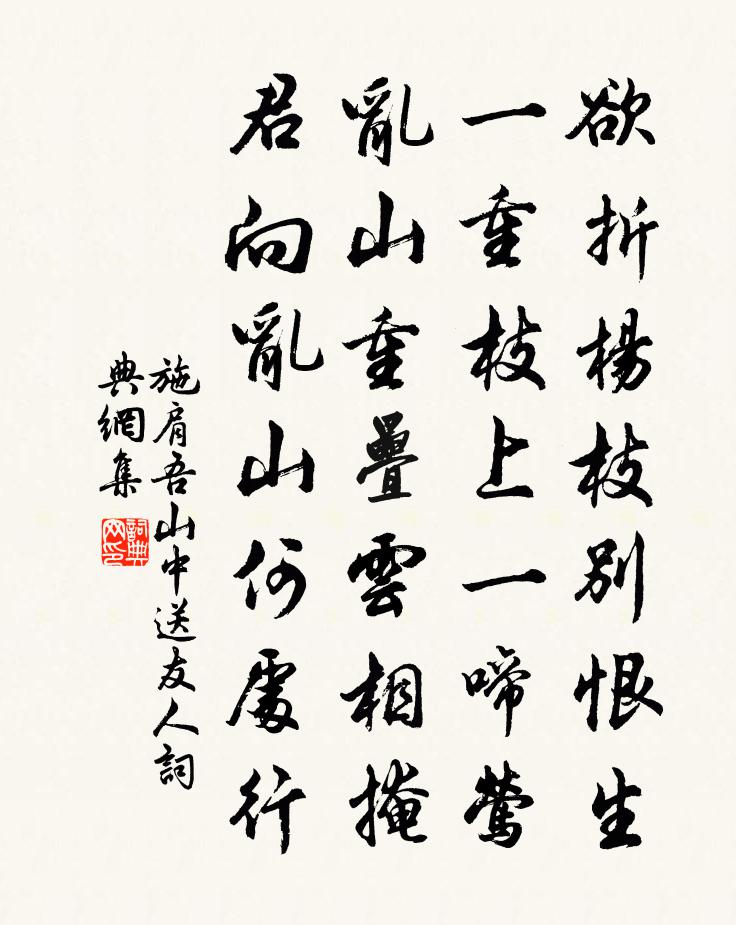 欲折楊枝別恨生
一重枝上一啼鶯
亂山重疊雲相掩
君向亂山何處行
施肩吾山中送友人詞
典網集
詞典網印